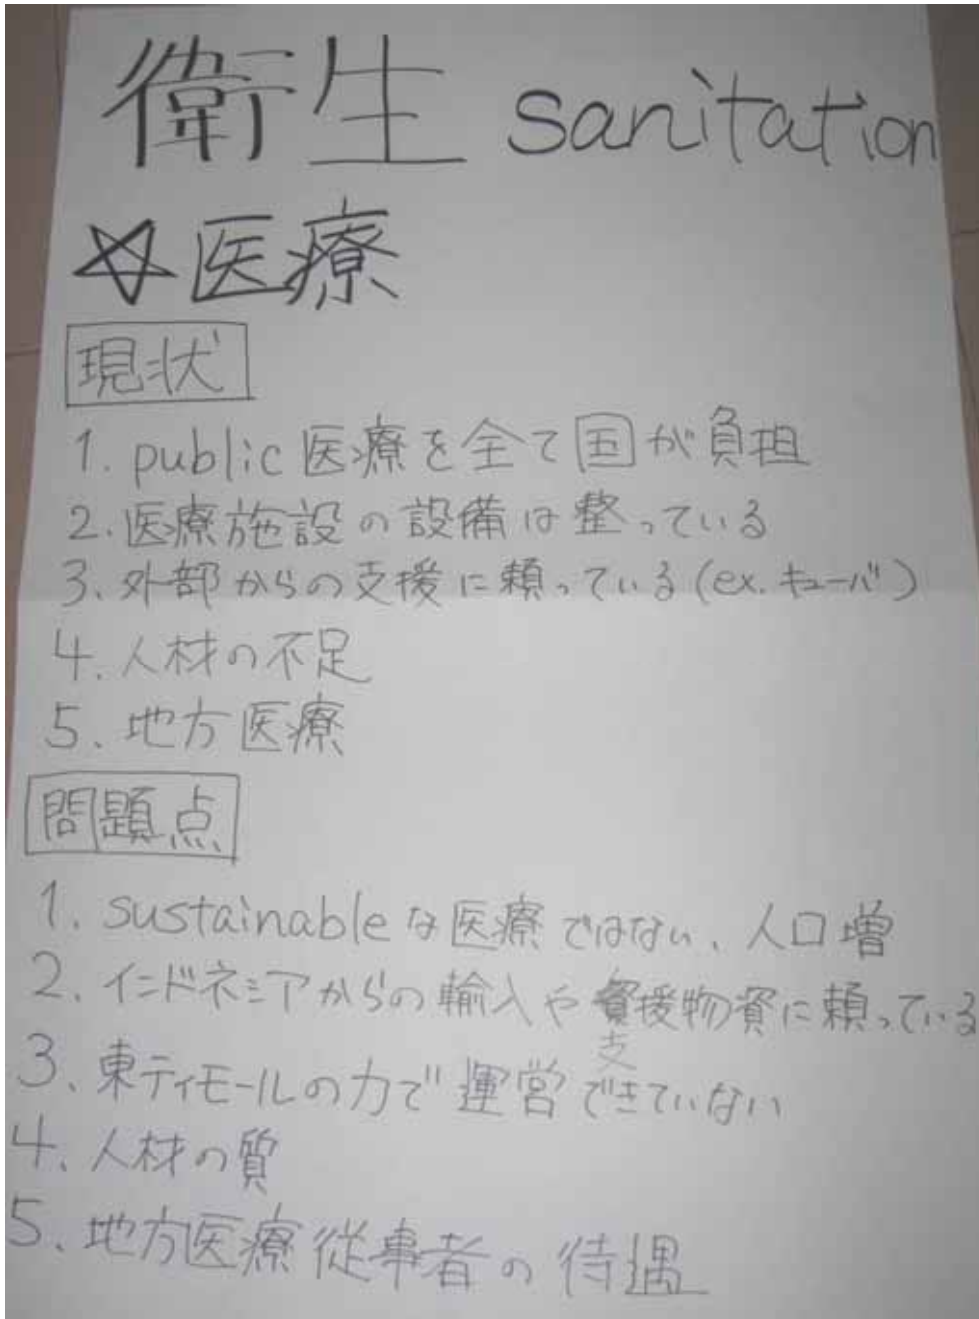 衛生 sanitation
☆医療
現状
1. public 医療を全て国が負担
2. 医療施設の設備は整っている
3. 外部からの支援に頼っている (ex. キューバ)
4. 人材の不足
5、地方医療
問題点
1、sustainableな医療ではない、人口増
2、インドネシアからの輸入や援物資に頼っている
支
3、東ティモールの力で運営できていない
4、人材の質
5、地方医療従事者の待遇